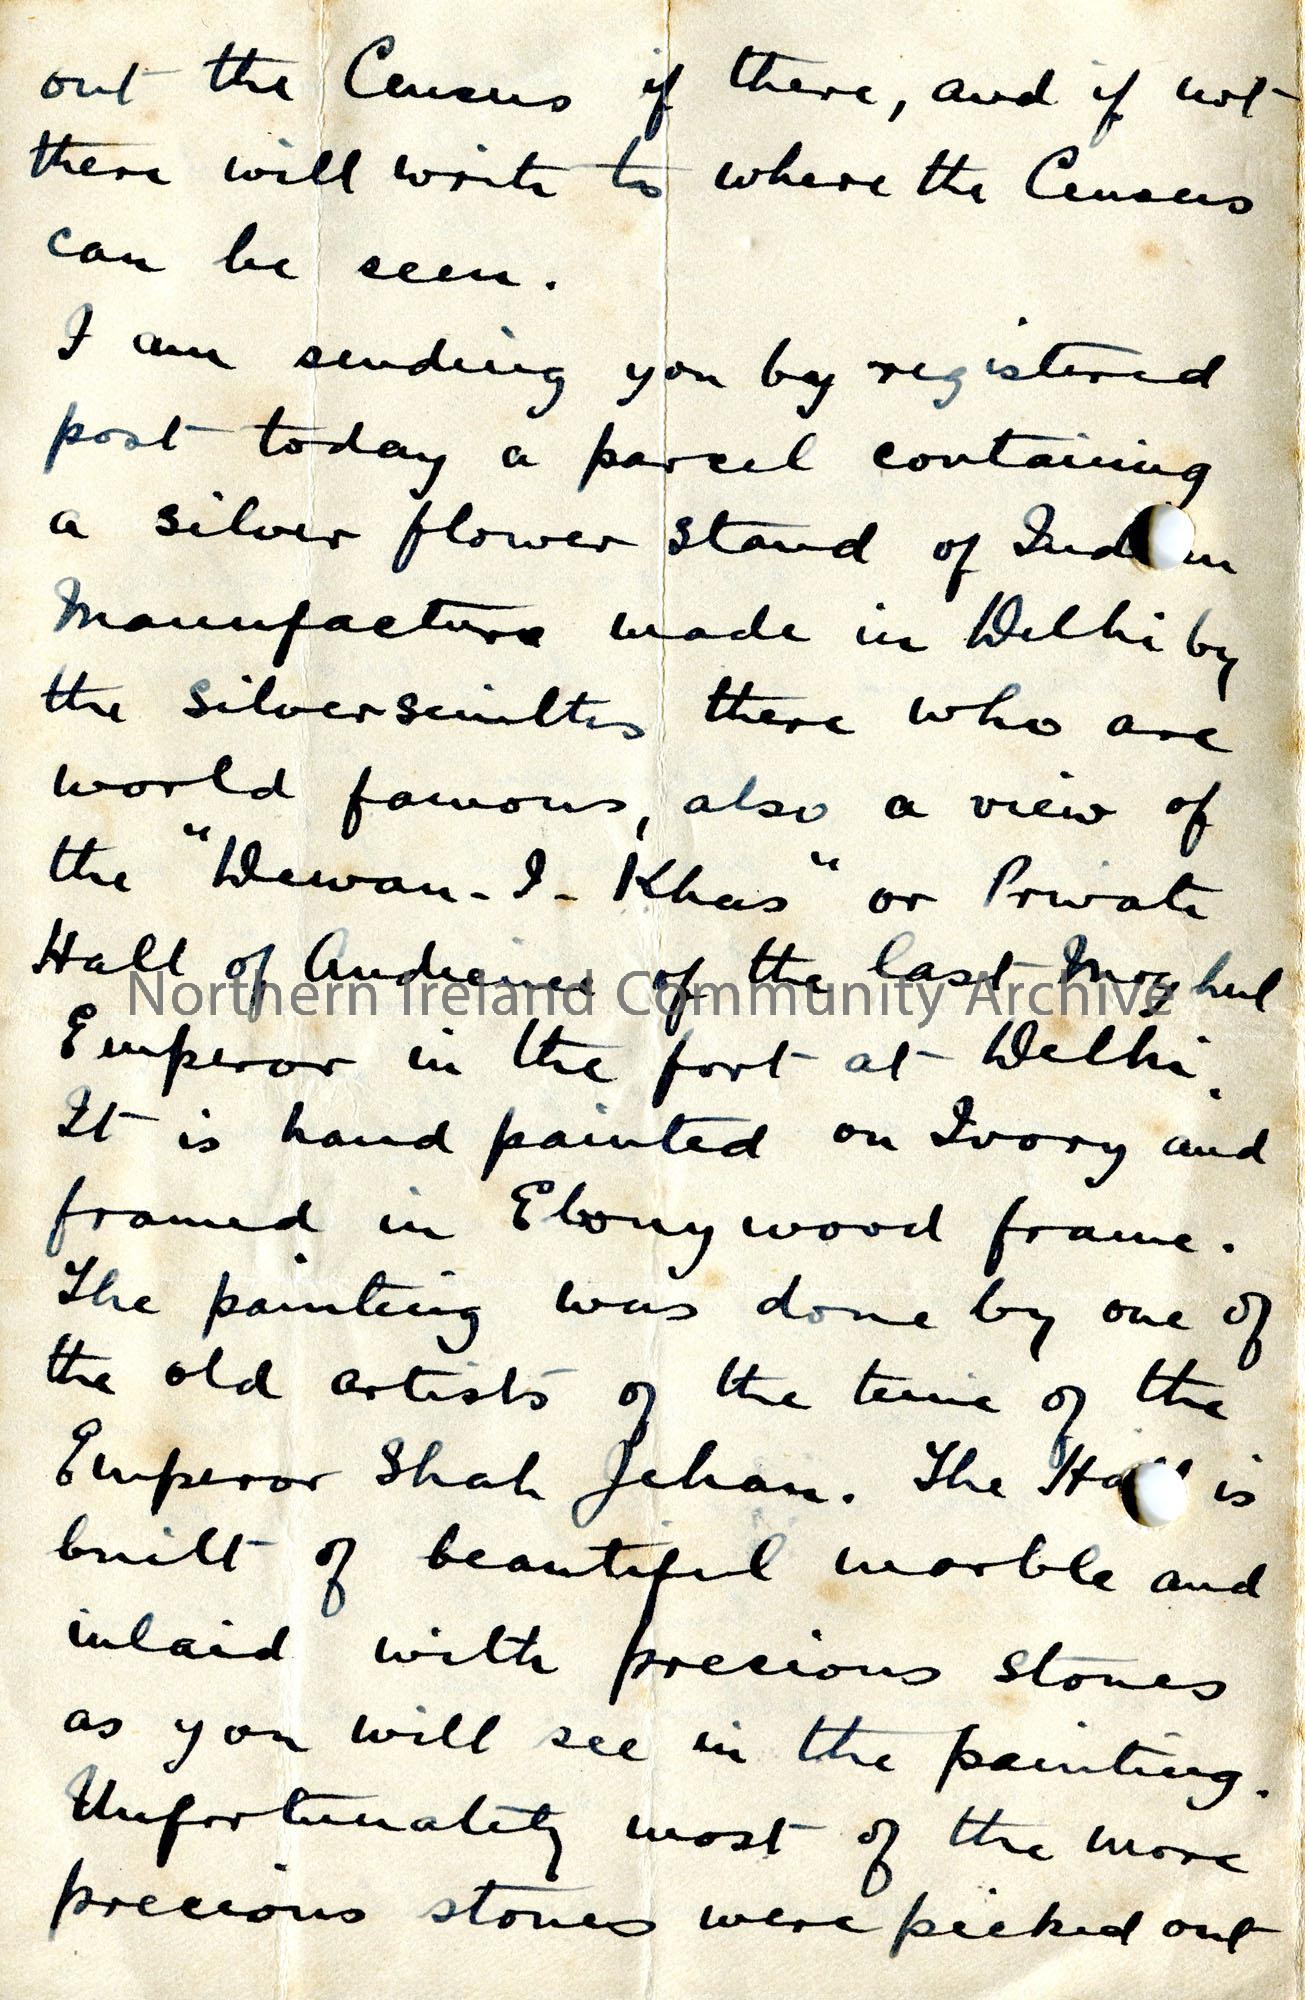 out the Census if there, and if not
there will write to where the Census
can be seen.
I am sending you by registered
post today a parcel containing
a silver flower stand of Indn
Manufacture made in Delhi by
the silversmiths there who are
world famous, also a view of
the "Dewan-I-Khas" or Private
Hall of Audience of the last Moghul
Northern Ireland Community Archive
Emperor in the fort at Delhi.
It is hand painted on Ivory and
framed in Ebony wood frame.
The painting was done by one of
the old artists of the time of the
Emperor Shah Jehan. The Hall is
built of beautiful marble and
inlaid with precious stones
as you will see in the painting.
Unfortunately most of the more
precious stones were picked out